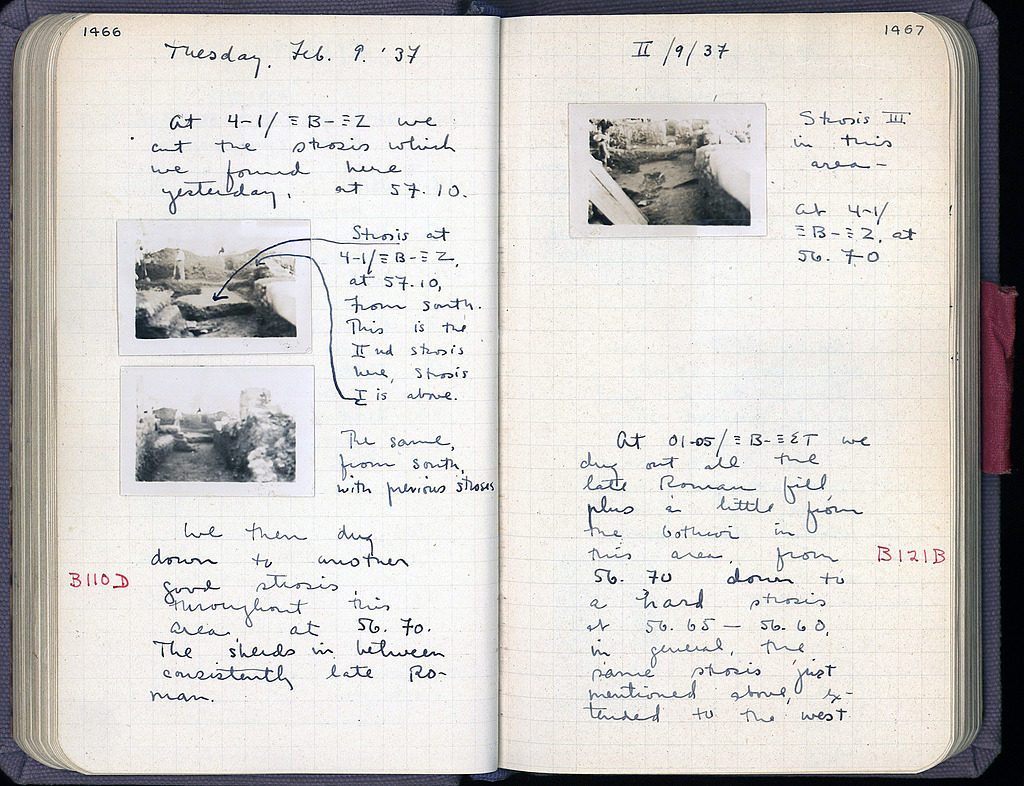 1466
Tuesday, Feb. 9. '37
At 4-1/ΞB-ΞZ we
cut the strosis which
we found here
yesterday, at 57.10.
Strosis at
4-1/ΞB-ΞZ,
at 57.10,
from south.
This is the
IInd strosis
here, strosis
I is above.
The same,
from south,
with previous stroses
We then dug
down to another
B110D
good strosis
throughout this
area, at 56.70.
The sherds in between
consistently late Ro-
man.
1467
II/9/37
Strosis III
in this
area-
At 4-1/
ΞB-ΞZ, at
56.70
At 01-05/ΞB-ΞΣT we
dug out all the
late Roman fill
plus a little from
the bothroi in
this area, from
B121B
56.70 down to
a hard strosis
at 56.65 - 56.60,
in general, the
same strosis just
mentioned above, ex-
tended to the west